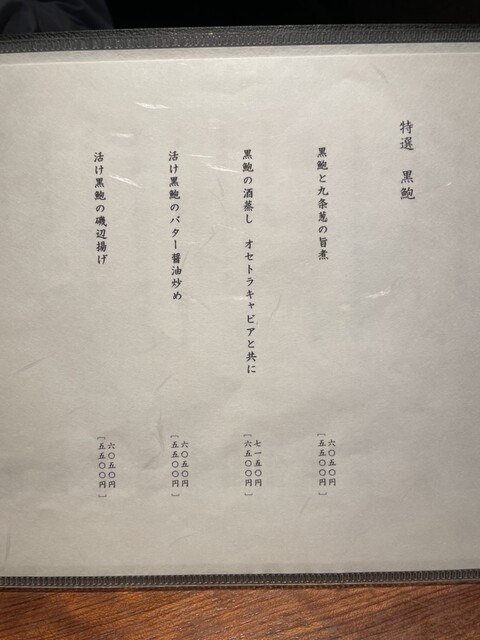 特選　黒鮑
黒鮑と九条葱の旨煮
六〇五〇円
［五五〇〇円］
黒鮑の酒蒸し　オセトラキャビアと共に
七一五〇円
［六五〇〇円］
活け黒鮑のバター醤油炒め
六〇五〇円
［五五〇〇円］
活け黒鮑の磯辺揚げ
六〇五〇円
［五五〇〇円］